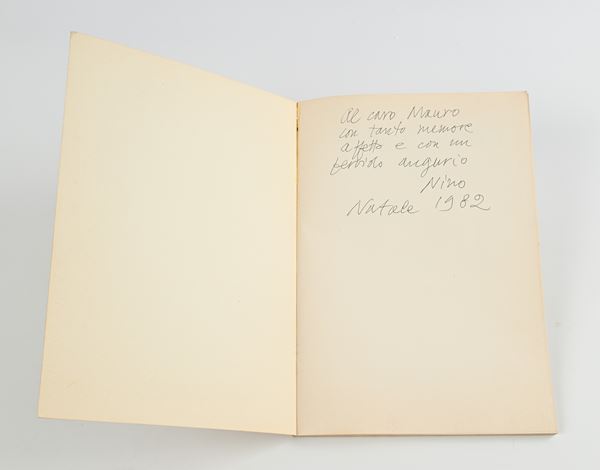 Al caro Mauro
con tanto memore
affetto e con un
fervido augurio
Nino
Natale 1982